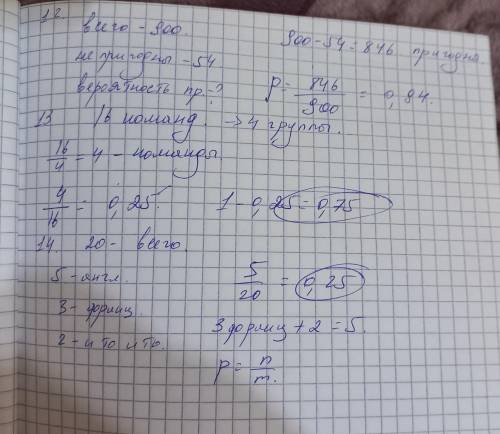 12.
всего - 900.
900 - 54 = 846 пригодна
не пригодны - 54
вероятность пр. - ?
p = 846/900 = 0,94.
13 16 команд. -> 4 группы.
16/4 = 4 - команды.
4/16 = 0,25. 1 - 0,25 = 0,75
14. 20 - всего.
5 - англ. 5/20 = 0,25
3 - франц. 3 франц + 2 = 5.
2 - и то и то.
p = n/m.